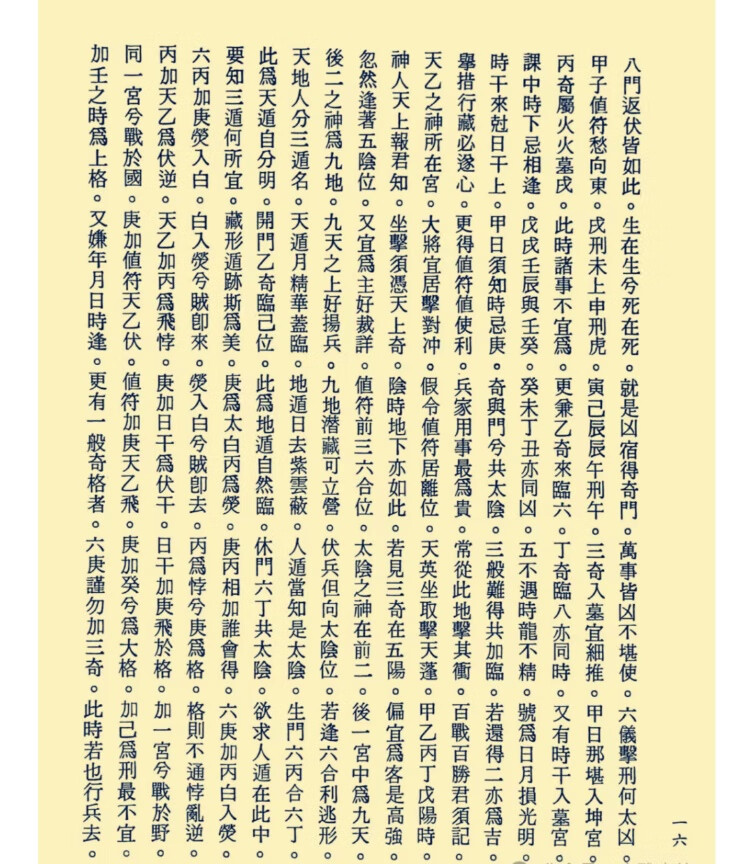 八門返伏皆如此。生在生兮死在死。就是凶宿得奇門。萬事皆凶不堪使。六儀擊刑何太凶。
甲子値符愁向東。戌刑未上申刑虎。寅己辰辰午刑午。三奇入墓宜細推。甲日那堪入坤宮。
丙奇屬火火墓戌。此時諸事不宜爲。更兼乙奇來臨六。丁奇臨八亦同時。又有時干入墓宮。
課中時下忌相逢。戊戌壬辰與壬癸。癸未丁丑亦同凶。五不遇時龍不精。號爲日月損光明。
時干來尅日干上。甲日須知時忌庚。奇與門兮共太陰。三般難得共加臨。若還得二亦爲吉。
擧措行藏必遂心。更得値符値使利。兵家用事最爲貴。常從此地擊其衝。百戰百勝君須記。
天乙之神所在宮。大將宜居擊對冲。假令値符居離位。天英坐取擊天蓬。甲乙丙丁戊陽時。
神人天上報君知。坐擊須憑天上奇。陰時地下亦如此。若見三奇在五陽。偏宜爲客是高強。
忽然逢著五陰位。又宜爲主好裁詳。値符前三六合位。太陰之神在前二。後一宮中爲九天。
後二之神爲九地。九天之上好揚兵。九地潛藏可立營。伏兵但向太陰位。若逢六合利逃形。
天地人分三遁名。天遁月精華蓋臨。地遁日去紫雲蔽。人遁當知是太陰。生門六丙合六丁。
此爲天遁自分明。開門乙奇臨己位。此爲地遁自然臨。休門六丁共太陰。欲求人遁在此中。
要知三遁何所宜。藏形遁跡斯爲美。庚爲太白丙爲熒。庚丙相加誰會得。六庚加丙白入熒。
六丙加庚熒入白。白入熒兮賊卽來。熒入白兮賊卽去。丙爲悖兮庚爲格。格則不通悖亂逆。
丙加天乙爲伏逆。天乙加丙爲飛悖。庚加日干爲伏干。日干加庚飛於格。加一宮兮戰於野。
同一宮兮戰於國。庚加値符天乙伏。値符加庚天乙飛。庚加癸兮爲大格。加己爲刑最不宜。
加壬之時爲上格。又嫌年月日時逢。更有一般奇格者。六庚謹勿加三奇。此時若也行兵去。
一六